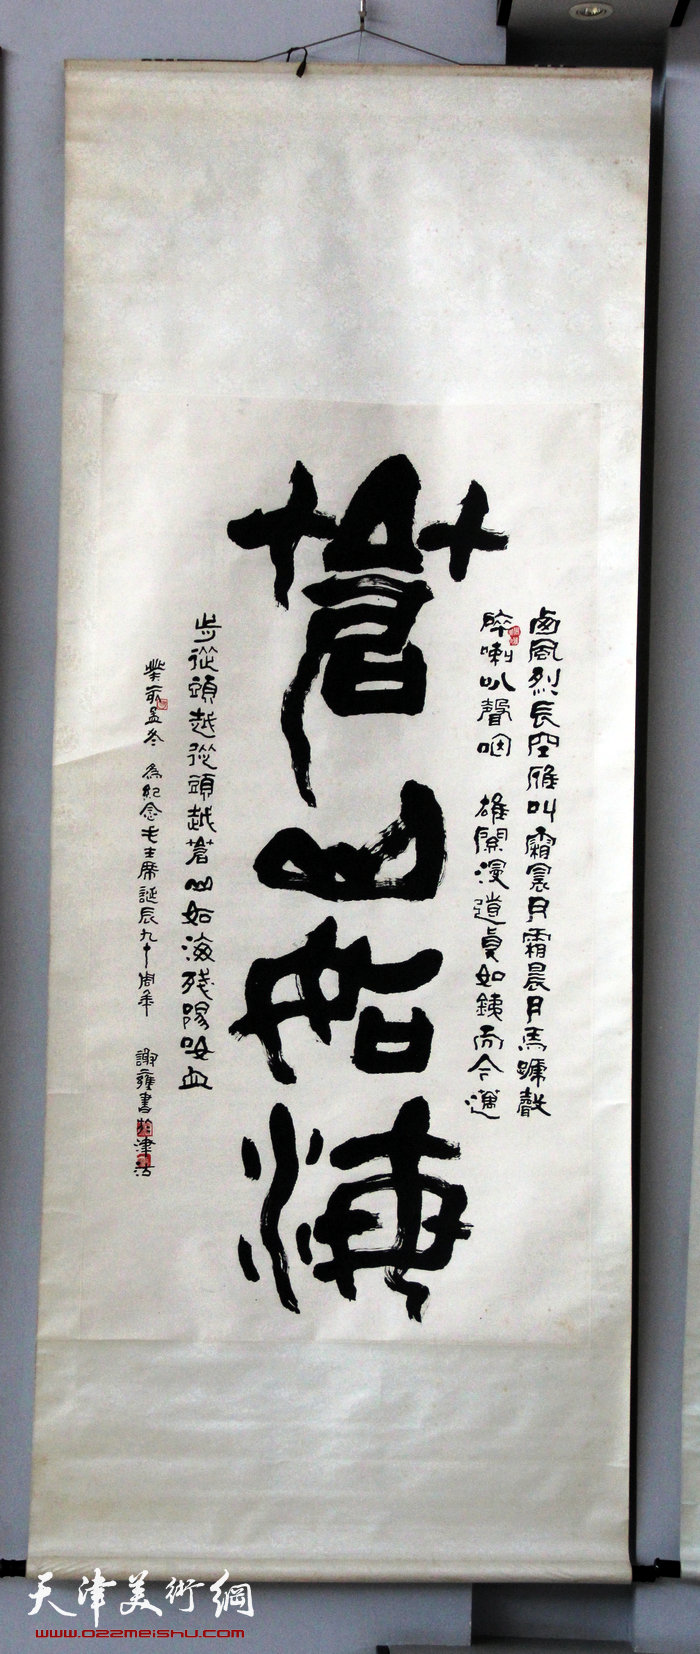 蒼山如海
西風烈長空雁叫霜晨月霜晨月馬蹄聲
碎喇叭聲咽 雄關漫道真如鐵而今邁
步從頭越從頭越蒼山如海殘陽如血
癸亥孟冬 為紀念毛主席誕辰九十周年 謝雍書於津沽
天津美術網
www.022meishu.com